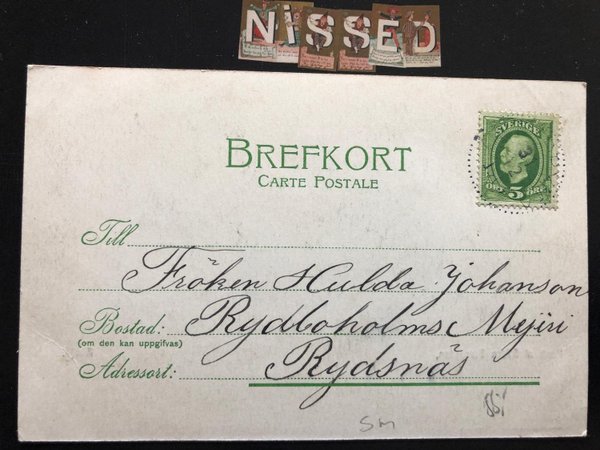 NiSSED
SVERIGE
5
ÖRE ÖRE
BREFKORT
CARTE POSTALE
Till
Fröken Hulda Johanson
Bostad: Rydboholms Mejiri
(om den kan uppgifvas)
Adressort: Rydsnäs
SM